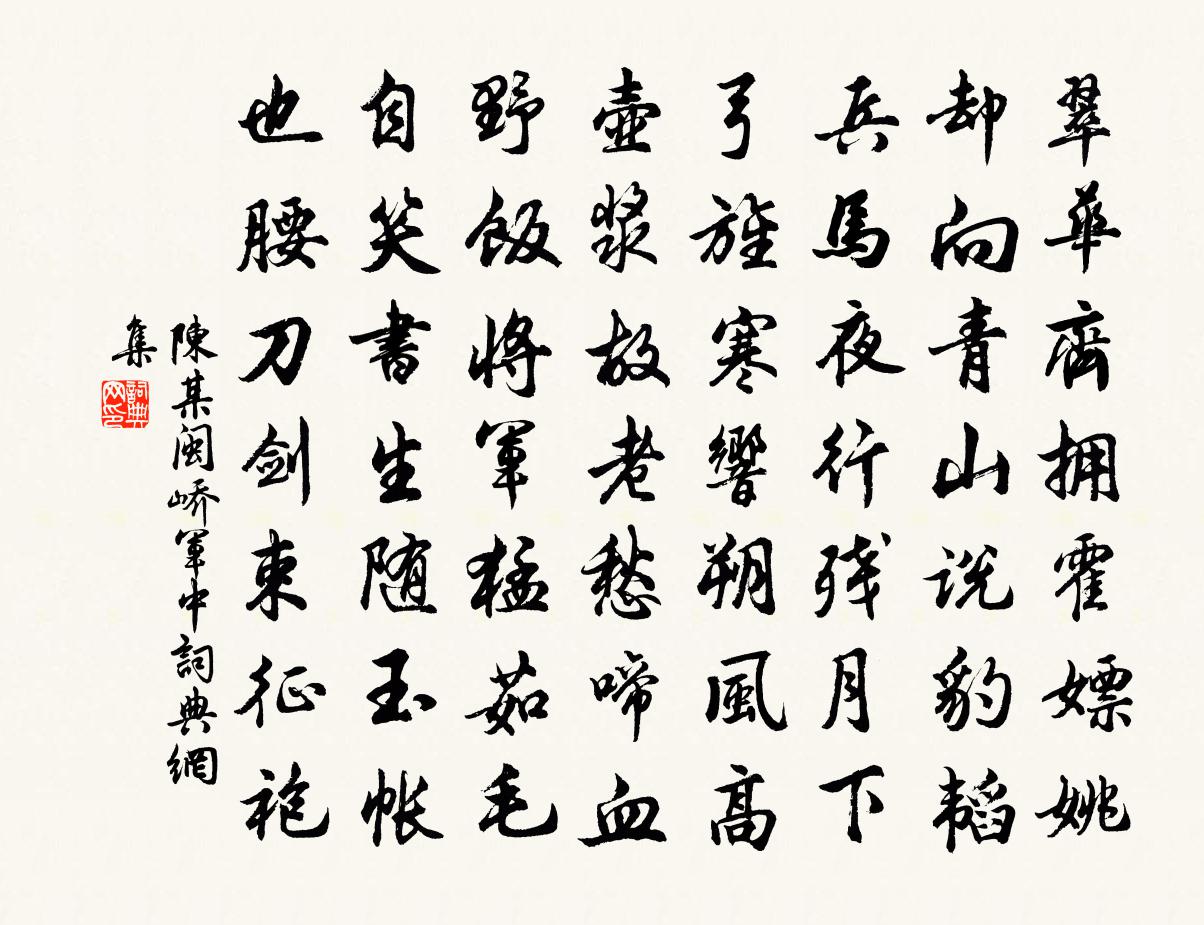 翠華齊擁霍嫖姚
却向青山説豹韜
兵馬夜行残月下
弓旌寒響朔風高
壺漿故老愁啼血
野飯將軍猛茹毛
自笑書生随玉帳
也腰刀剑束征袍
陳某閩嶠軍中詞典網
集
詞典网印